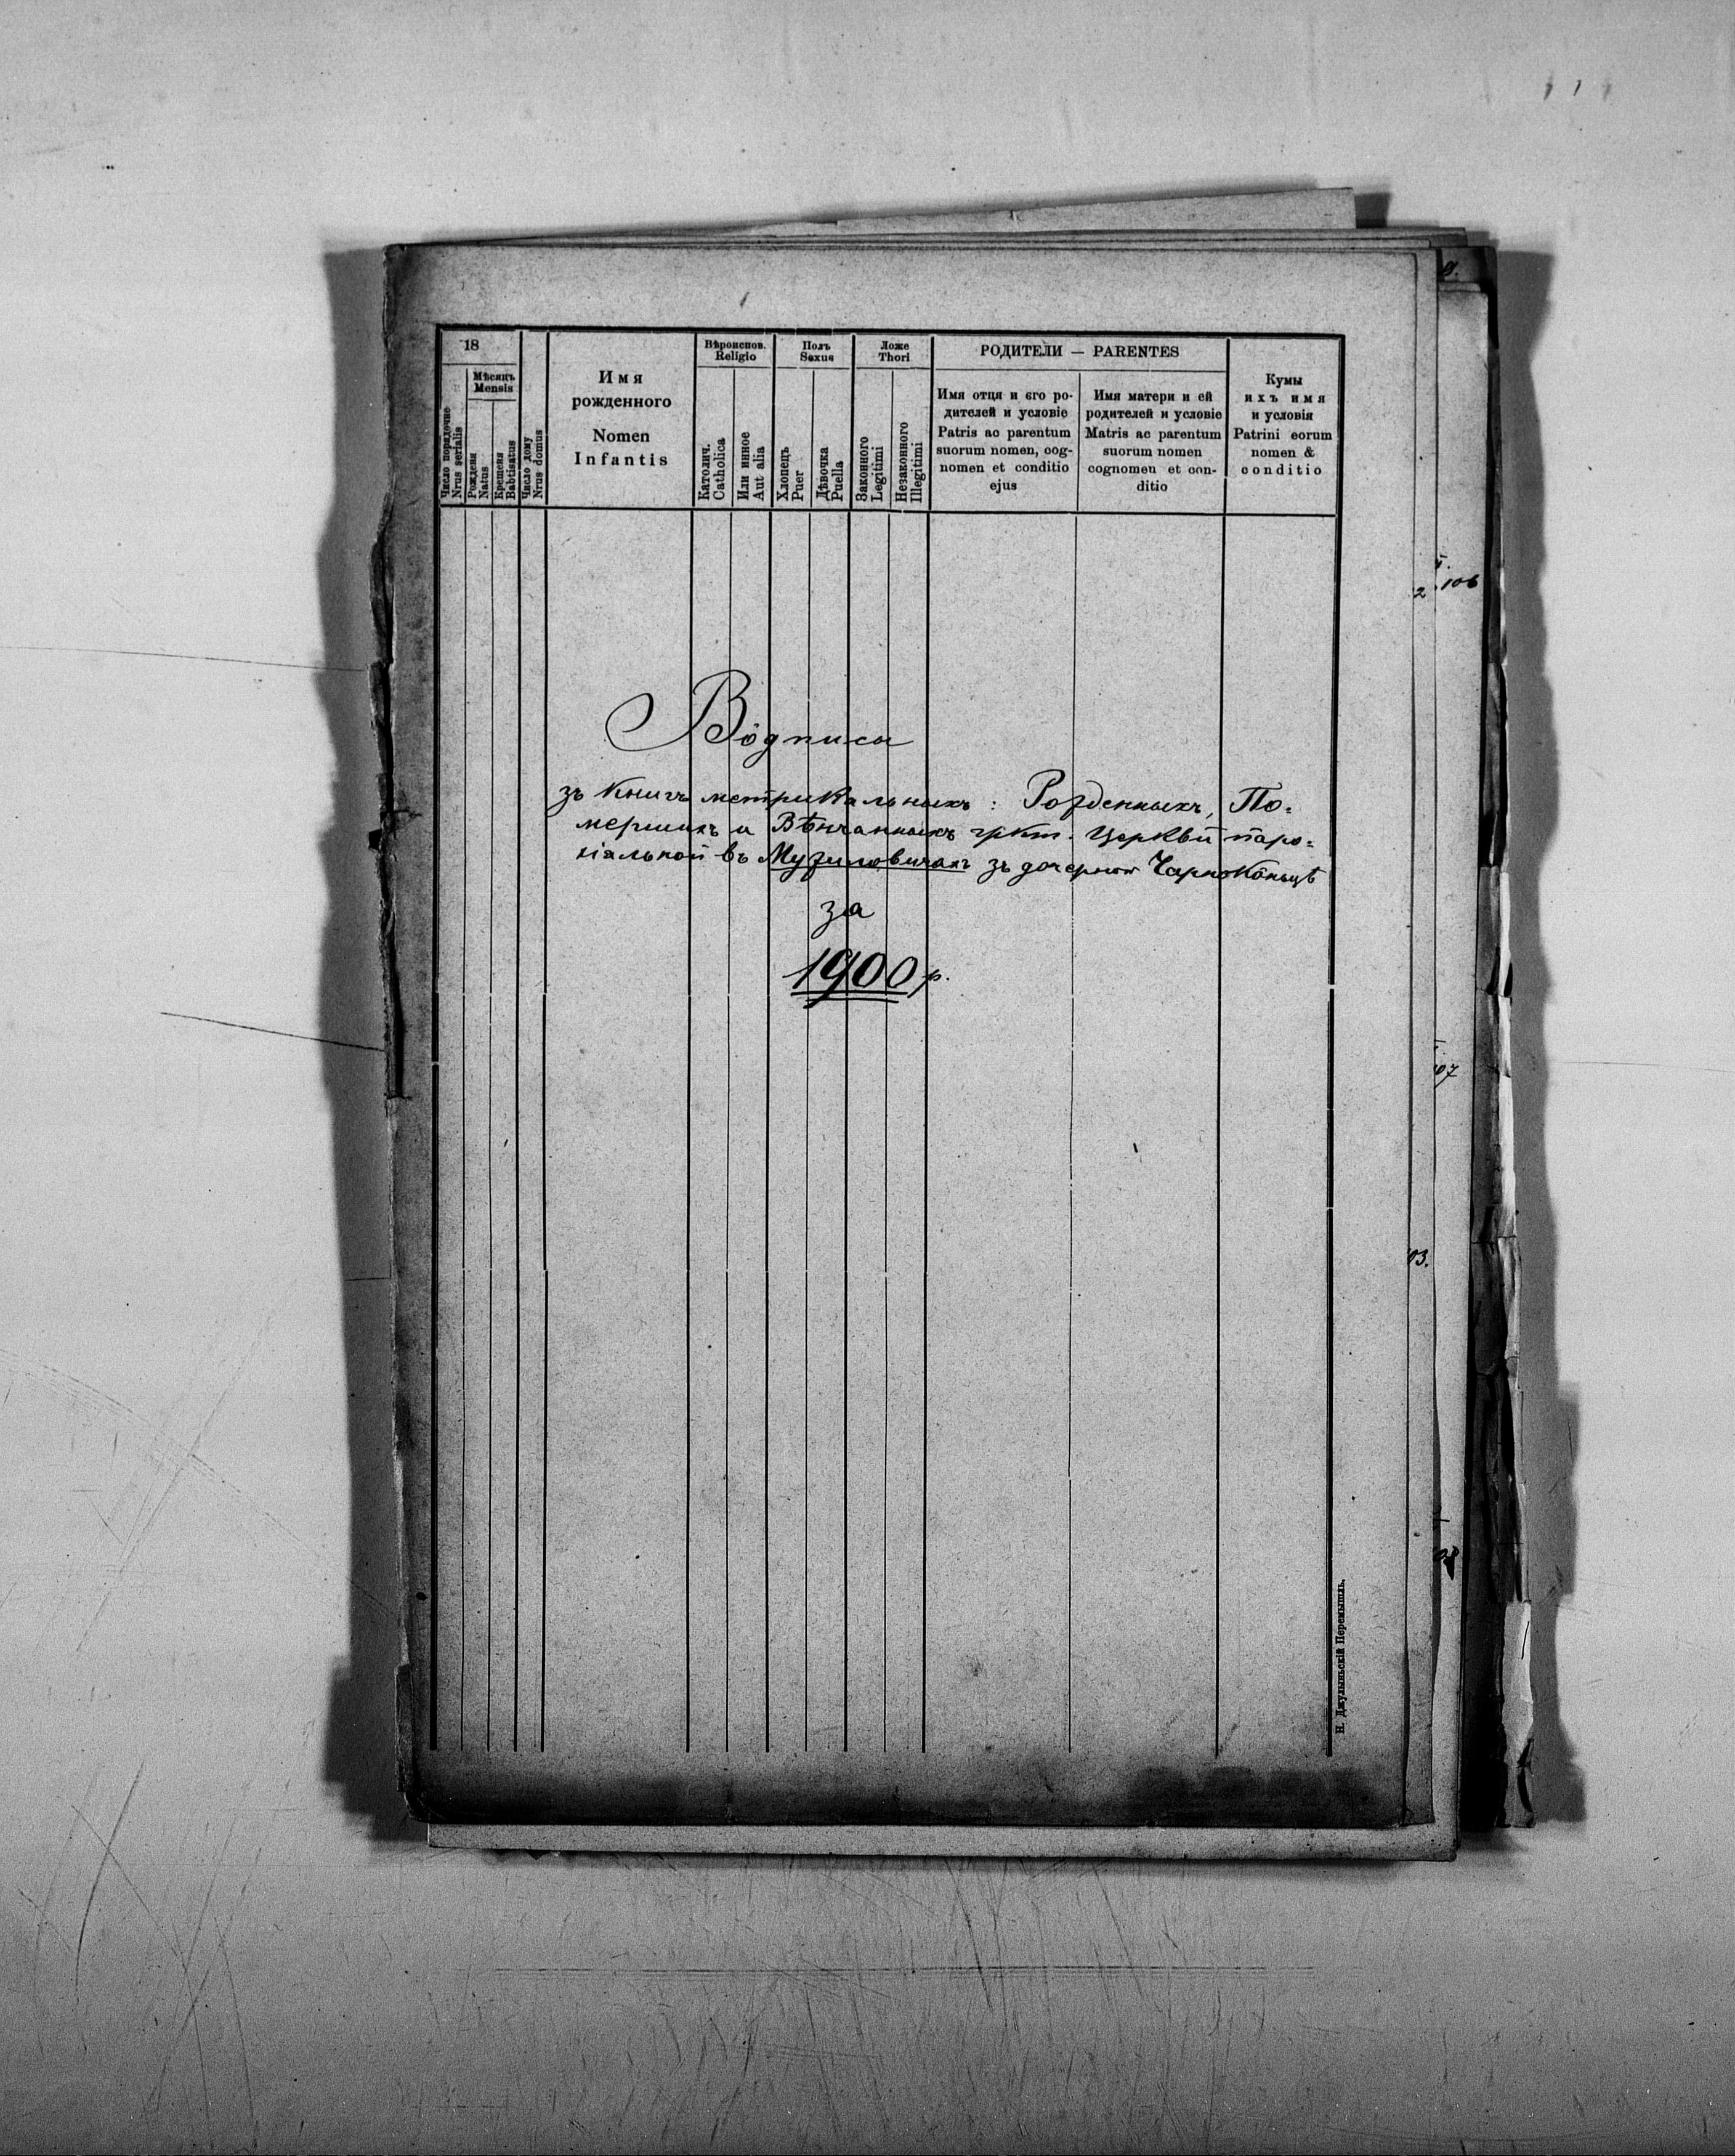 18
Мѣсяцъ
Mensis
Число порядочне
Nrus serialis
Рожденя
Natus
Крещеня
Babtisatus
Число дому
Nrus domus
Имя
рожденного
Nomen
Infantis
Вѣроиспов.
Religio
Католич.
Catholica
Или инное
Aut alia
Полъ
Sexus
Хлопецъ
Puer
Дѣвочка
Puella
Ложе
Thori
Законного
Legitimi
Незаконного
Illegitimi
РОДИТЕЛИ — PARENTES
Имя отця и его ро-
дителей и условіе
Patris ac parentum
suorum nomen, cog-
nomen et conditio
ejus
Имя матери и ей
родителей и условіе
Matris ac parentum
suorum nomen
cognomen et con-
ditio
Кумы
ихъ имя
и условія
Patrini eorum
nomen &
conditio
Вôдписы
зъ Книгъ метрикальныхъ: Рожденныхъ, По=
мершихъ и Вѣнчанныхъ гркт. Церкви паро=
хіяльной въ Мужиловичахъ зъ дочерною Чарнокôньцѣ
за
1900 р.
Н. Джулыньскій Перемышль.
106
03.